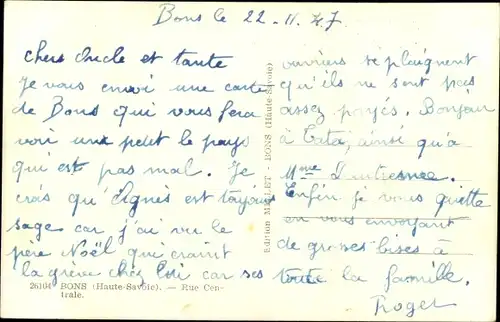 Bons le 22-11.47
chers oncle et tante
Je vous envoi une carte
de Bons qui vous fera
voir un petit le pays
qui est pas mal. Je
crois qu'Agnès est toujours
sage car j'ai vu le
père Noël qui craint
la grève chez lui car ses
26164 BONS (Haute-Savoie). — Rue Cen-
trale.
Edition - BONS (Haute-Savoie)
ouvriers se plaignent
qu'ils ne sont pas
assez payés. Bonjour
à Tata, ainsi qu'à
Mme
Enfin je vous quitte
en vous envoyant
de grosses bises à
toute la famille.
Roger